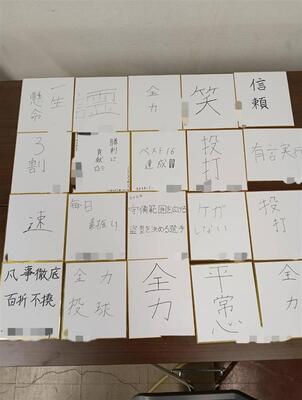 一生
懸命
全力
笑
信頼
3割
勝利に
貢献
ベスト16
達成!!!
投
打
有言実行
速
毎日
素振り
守備範囲を広げ
盗塁を決める選手
ケガ
しない
投
打
凡事徹底
百折不撓
全力
投球
全力
平常心